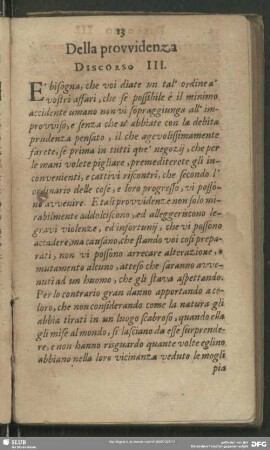 13
Della provvidenza
DISCORSO III.
E' bisogna, che voi diate un tal' ordine a'
vostri affari, che se possibile è il minimo
accidente umano non vi sopraggiunga all' im-
provviso, e senza che v' abbiate con la debita
prudenza pensato, il che agevolissimamente
farete, se prima in tutti que' negozij, che per
le mani volete pigliare, premediterete gli in-
convenienti, e cattivi riscontri, che secondo l'
ordinario delle cose, e loro progresso, vi posso-
no avvenire. E tali provvidenze non solo mi-
rabilmente addolciscono, ed alleggeriscono le
gravi violenze, ed infortunij, che vi possono
accadere, ma causano, che stando voi così prepa-
rati, non vi possono arrecare alterazione, o
mutamento alcuno, atteso che saranno avve-
nuti ad un huomo, che gli stava aspettando.
Per lo contrario gran danno apportando a co-
loro, che non considerando come la natura gli
abbia tirati in un luogo scabroso, quando ella
gli mise al mondo, si lasciano da esse sorprende-
re, e non hanno risguardo quante volte eglino
abbiano nella loro vicinanza veduto le mogli
pia
SLUB
DFG